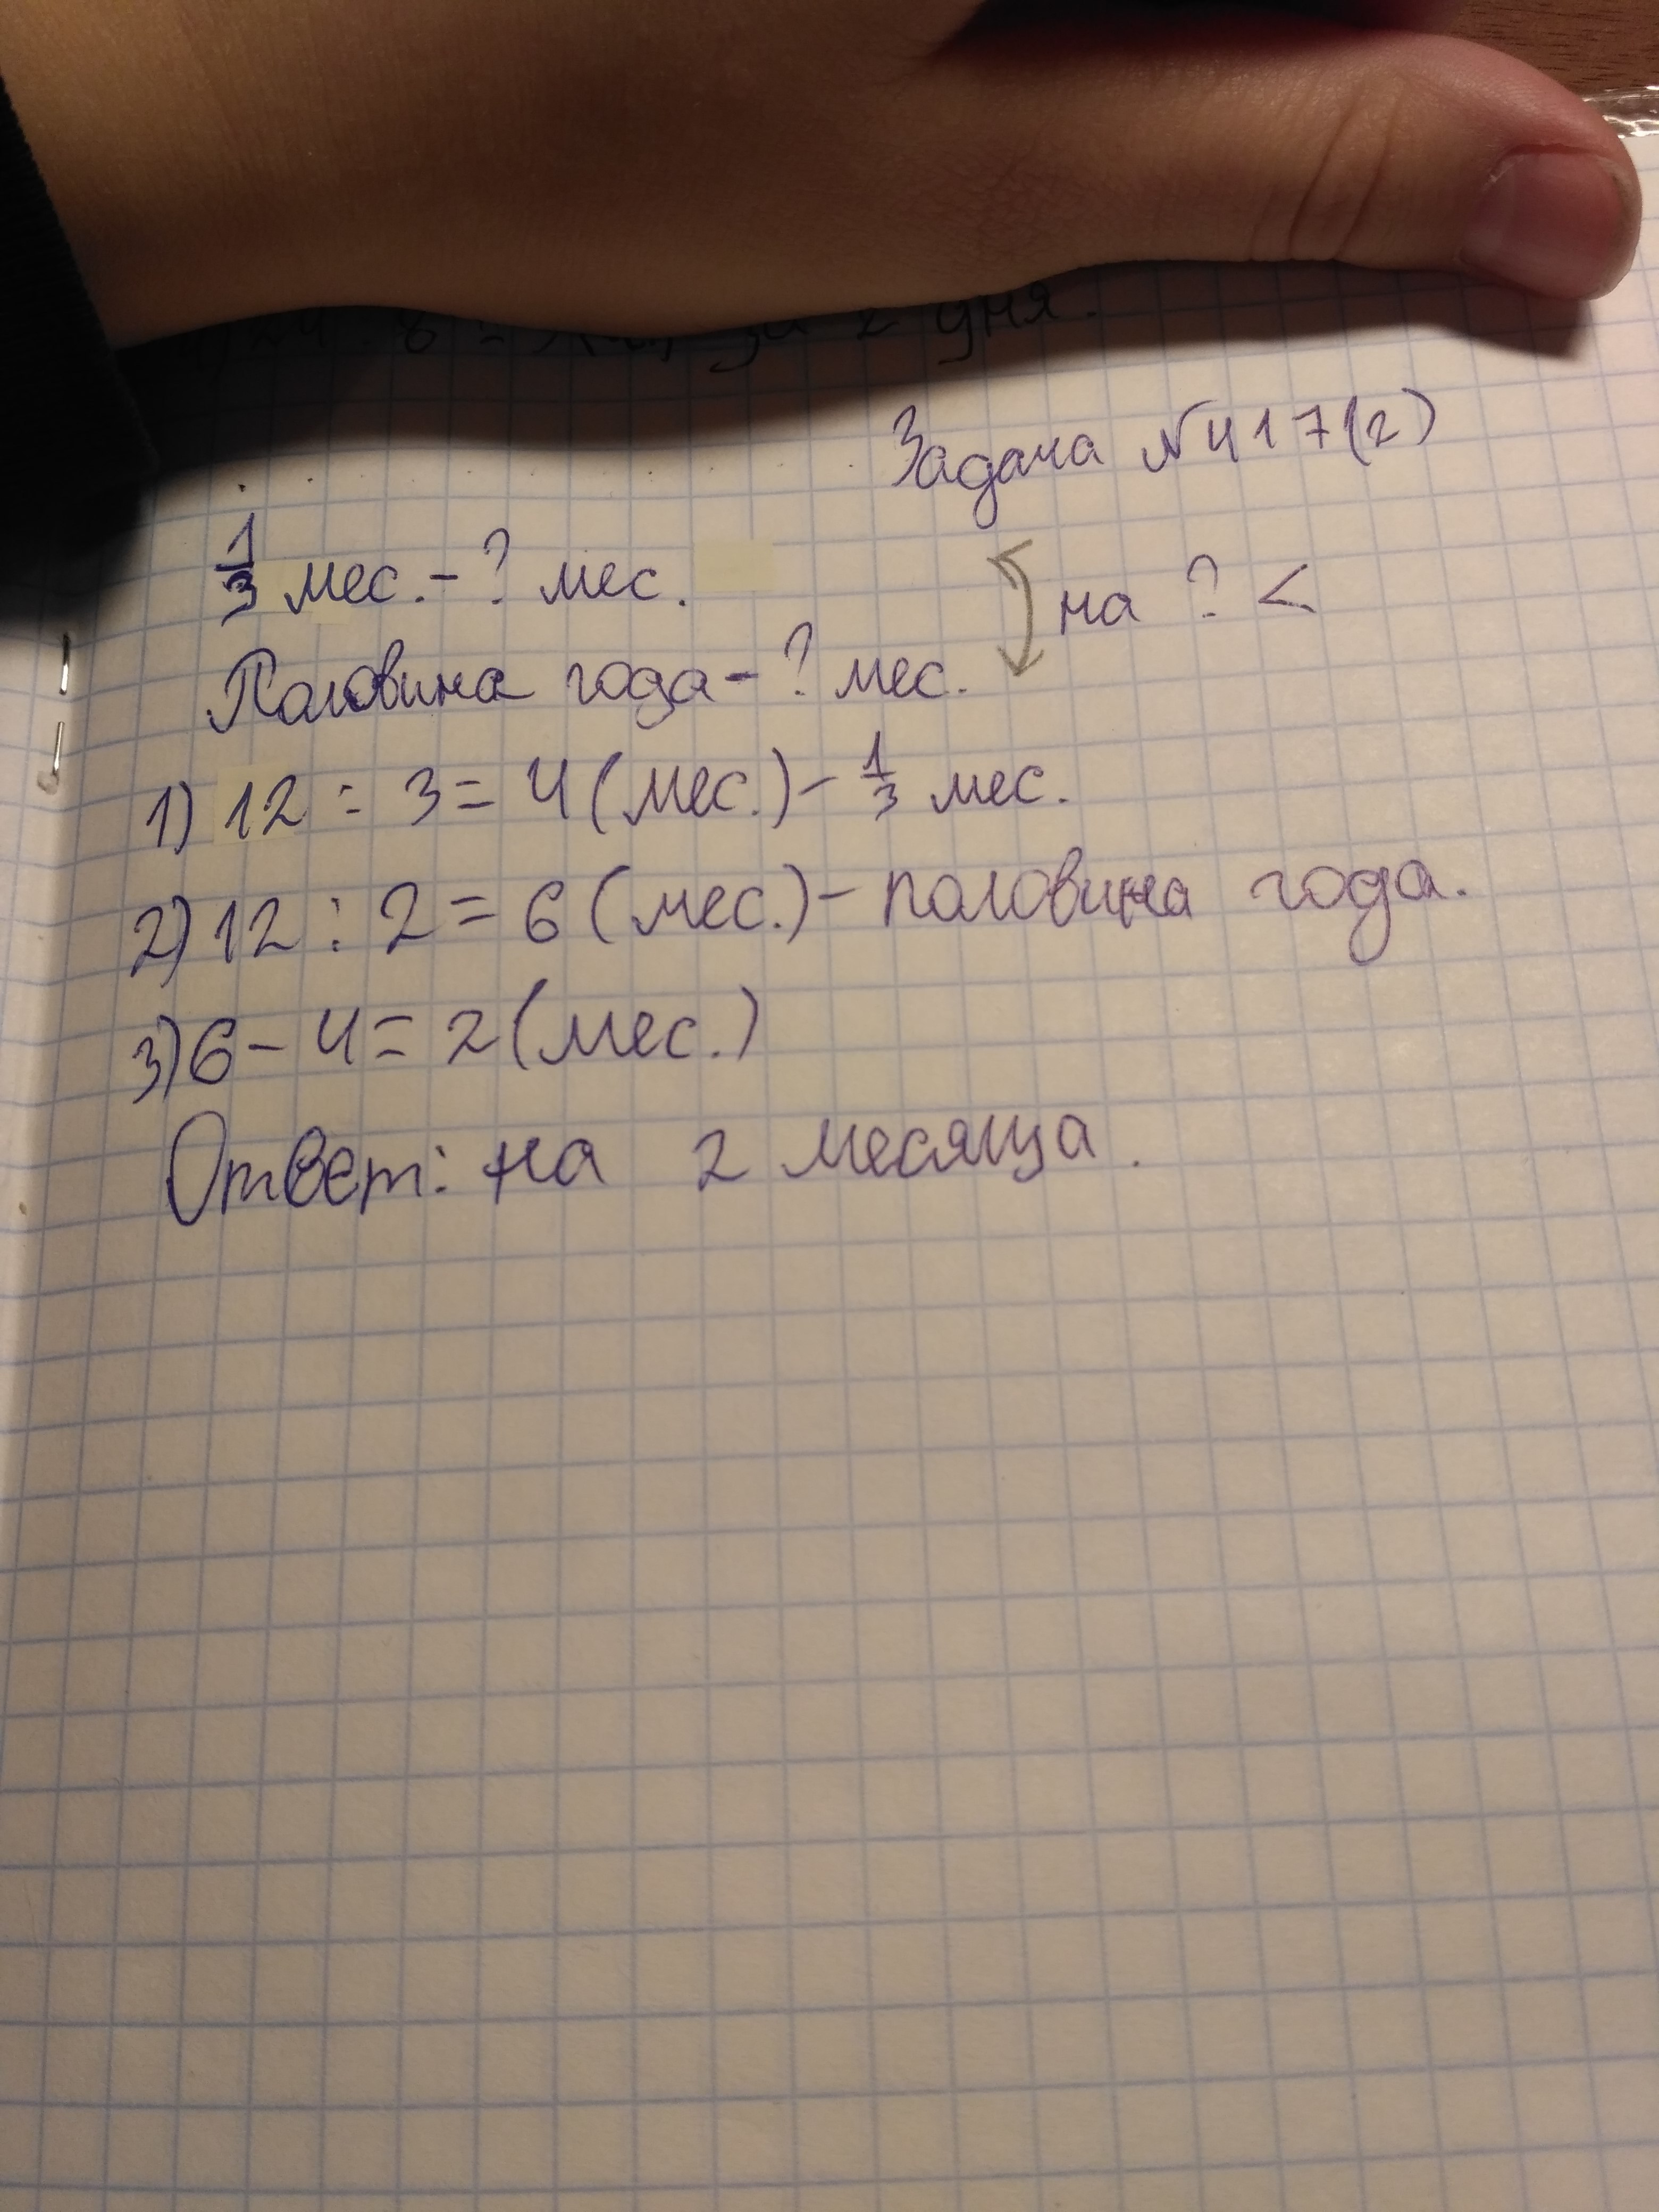 2 дня.
Задача №417(2)
1/3 мес. - ? мес.
на ? <
Половина года - ? мес.
1) 12 : 3 = 4 (мес.) - 1/3 мес.
2) 12 : 2 = 6 (мес.) - половина года.
3) 6 - 4 = 2 (мес.)
Ответ: на 2 месяца.